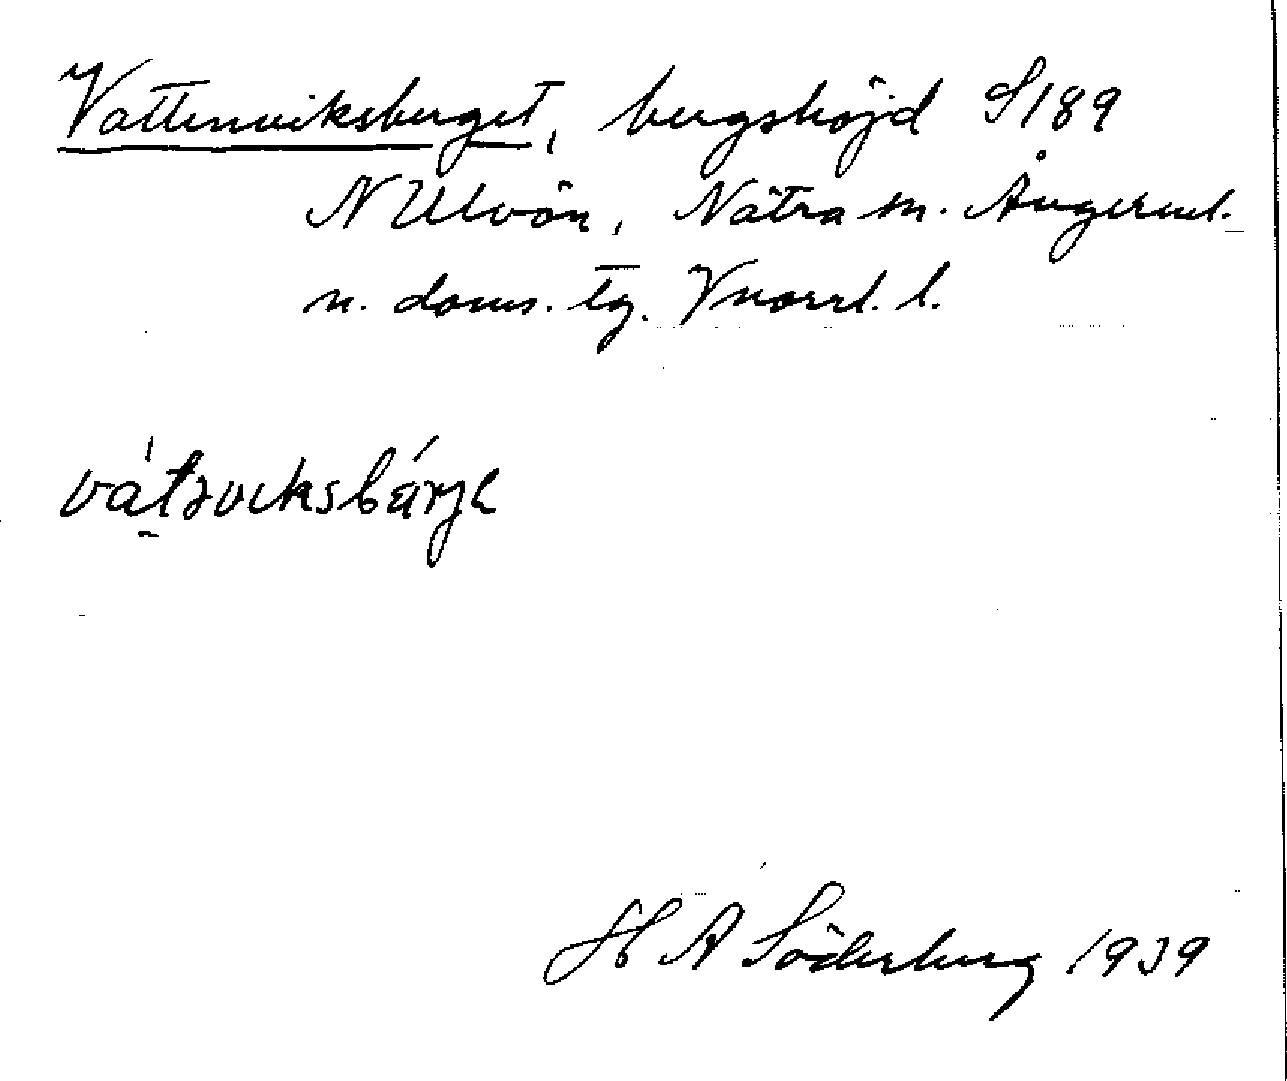 Vattenviksberget, bergshöjd S189
N Ulvön, Nätra sn. Ångerml.
n. doms. tg. Vnorrl. l.
vátəviksbárjɛ
H A Söderberg 1939